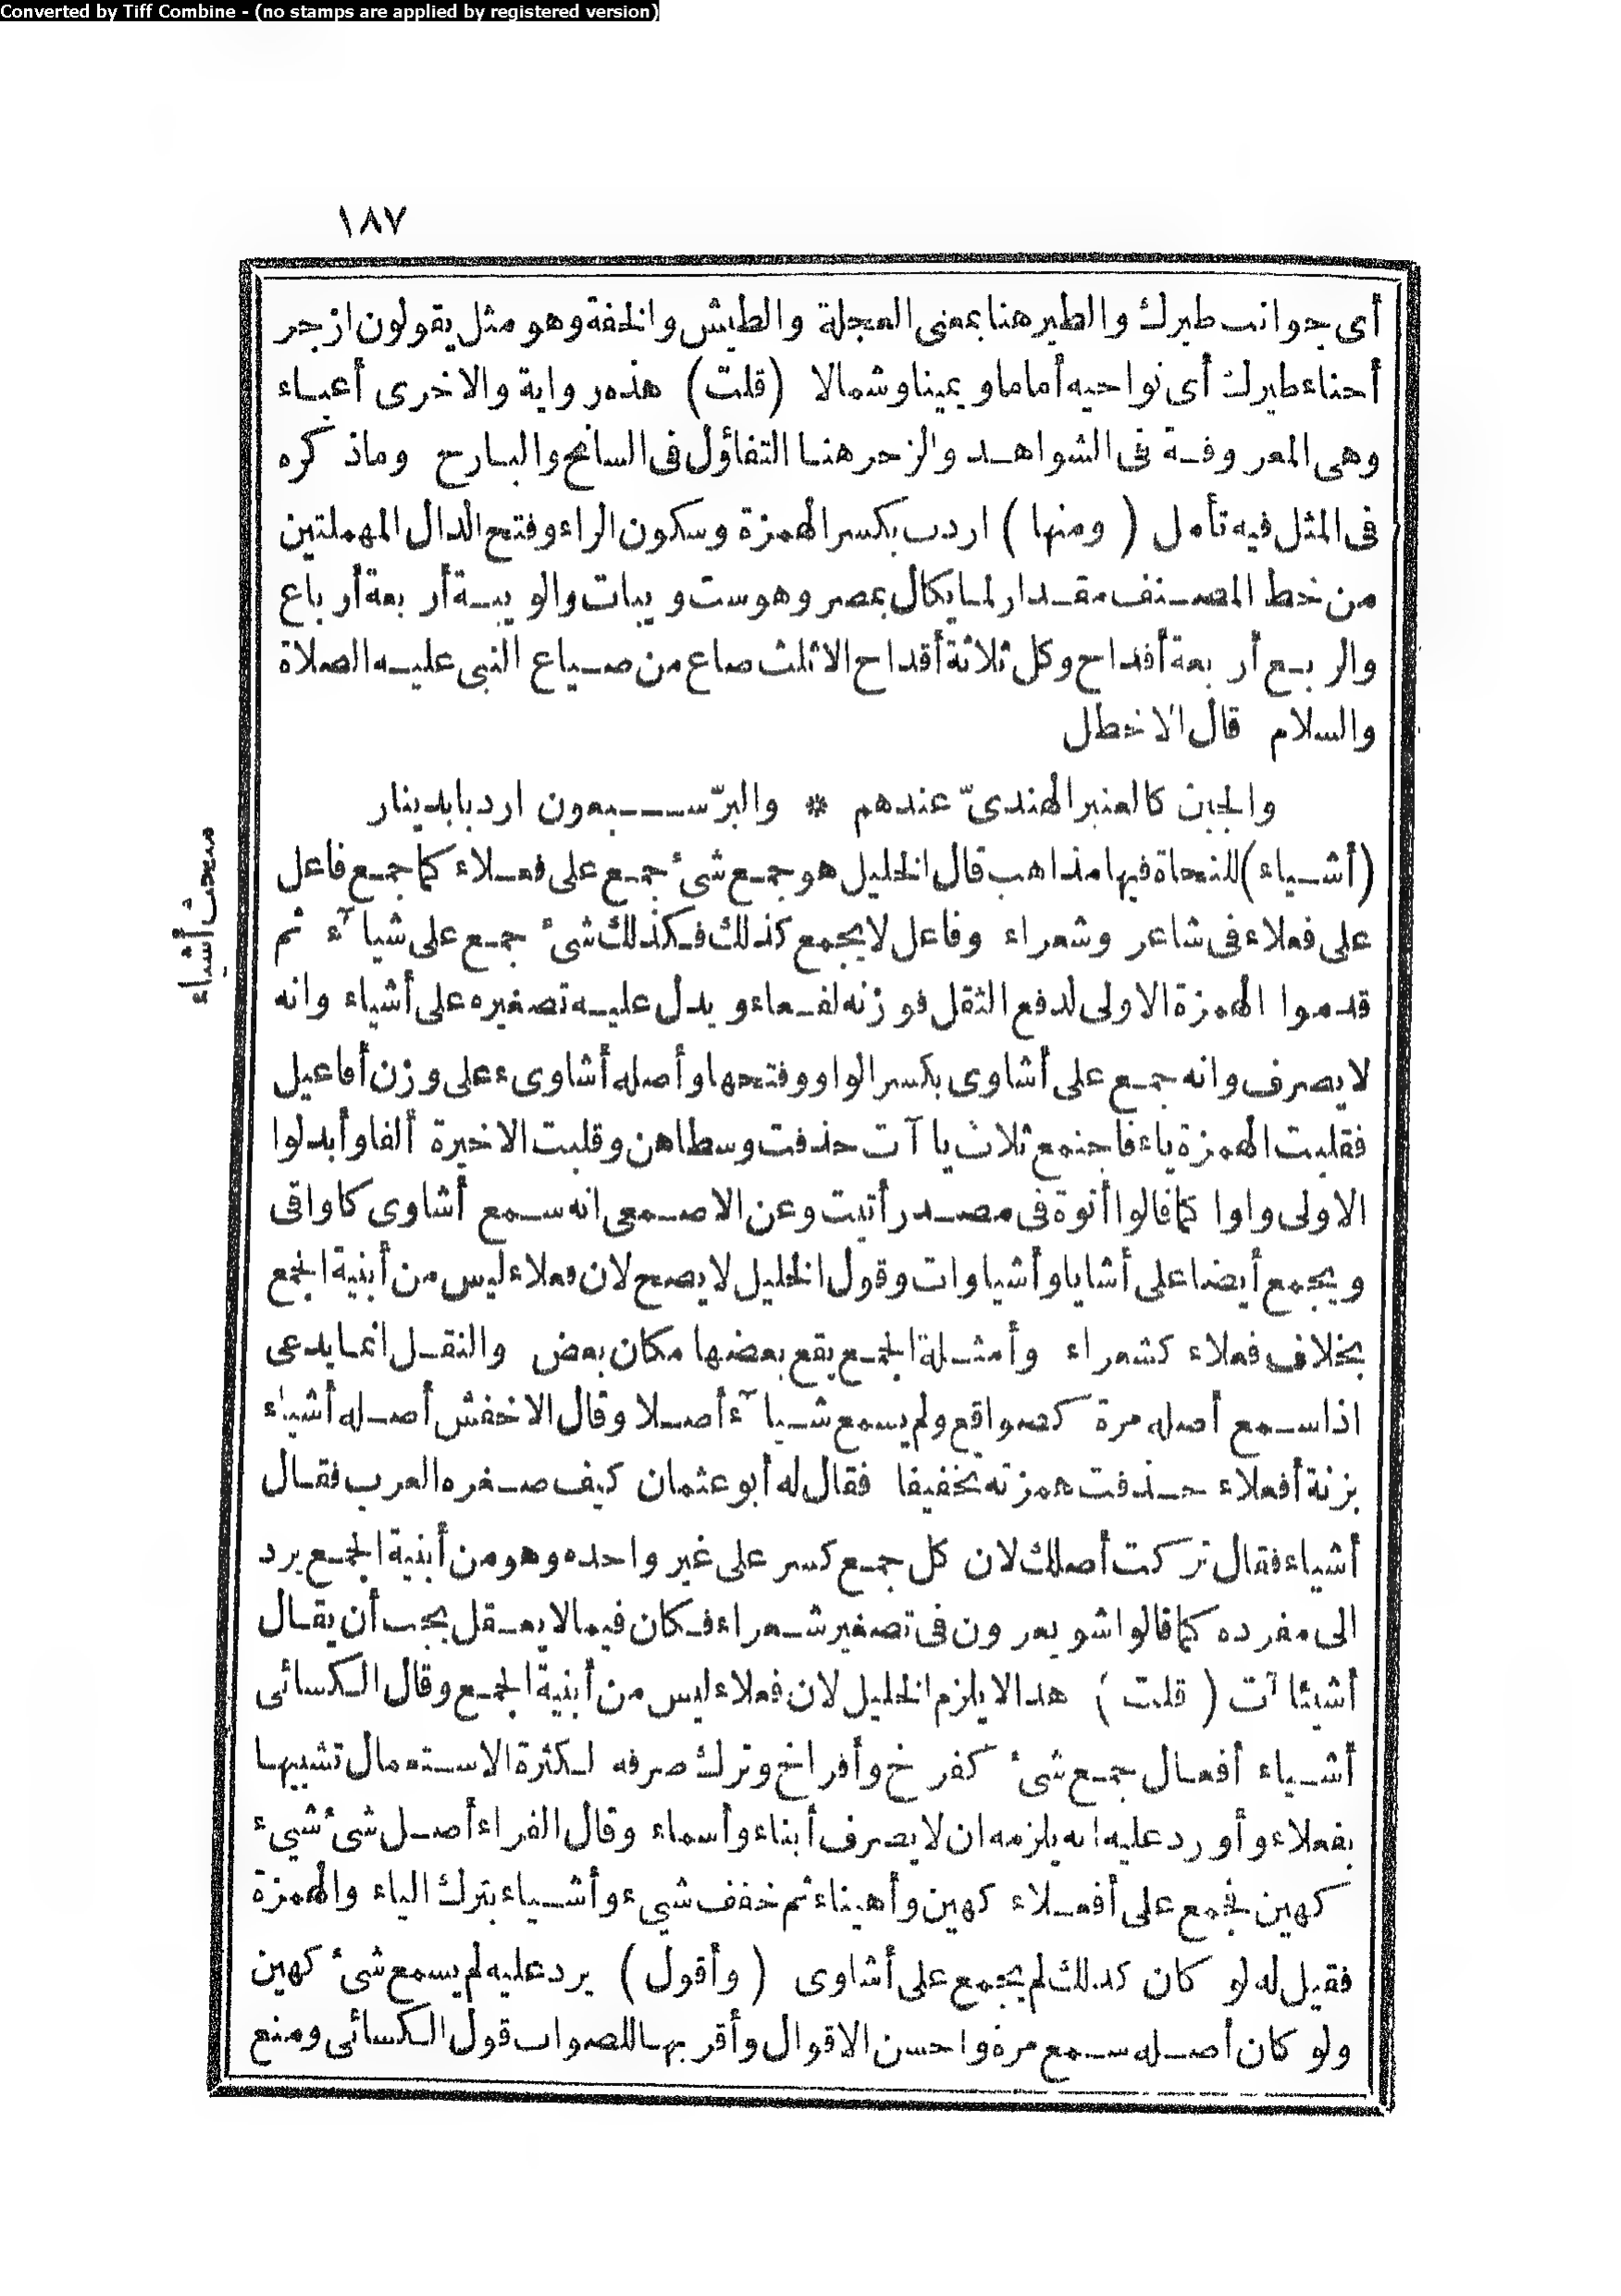 Converted by Tiff Combine - (no stamps are applied by registered version)
١٨٧
أى جوانب طيرك والطير هنا بمعنى العجلة والطيش والخفة وهو مثل يقولون ازجر
أحناء طيرك أى نواحيه أماما و يمينا وشمالا (قلت) هذه رواية والاخرى أعباء
وهى المعروفة فى الشواهد والزجر هنا التفاؤل فى السانح والبارح وماذكره
فى المثل فيه تأمل (ومنها) اردب بكسر الهمزة وسكون الراء وفتح الدال المهملتين
من خط المصنف مقدار لما يكال بمصر وهوست ويبات والويبة أربعة أرباع
والربع أربعة أقداح وكل ثلاثة أقداح الاثلث صاع من صياع النبى عليه الصلاة
والسلام قال الاخطل
والجبن كالعنبر الهندىّ عندهم * والبرّ سبعون اردبا بدينار
(أشياء) للنحاة فيها مذاهب قال الخليل هو جمع شئ جمع على فعلاء كما جمع فاعل
على فعلاء فى شاعر وشعراء وفاعل لا يجمع كذلك فكذلك شئ جمع على شيآء ثم
قدموا الهمزة الاولى لدفع الثقل فوزنه لفعاء و يدل عليه تصغيره على أشياء وانه
لا يصرف وانه جمع على أشاوى بكسر الواو وفتحها وأصله أشاوىء على وزن أفاعيل
فقلبت الهمزة ياء فاجتمع ثلاث ياآت حذفت وسطاهن وقلبت الاخيرة ألفا وأبدلوا
الاولى واوا كما قالوا أتوة فى مصدر أتيت وعن الاصمعى انه سمع أشاوى كاواقى
ويجمع أيضا على أشايا وأشياوات وقول الخليل لا يصح لان فعلاء ليس من أبنية الجمع
بخلاف فعلاء كشعراء وأمثلة الجمع يقع بعضها مكان بعض والنقل انما يدعى
اذا سمع أصله مرة كصواقع ولم يسمع شيآء أصلا وقال الاخفش أصله أشيئاء
بزنة أفعلاء حذفت همزته تخفيفا فقال له أبو عثمان كيف صغره العرب فقال
أشياء فقال تركت أصلك لان كل جمع كسر على غير واحده وهو من أبنية الجمع يرد
الى مفرده كما قالوا شويعرون فى تصغير شعراء فكان فيما لا يعقل يجب أن يقال
أشيئاآت (قلت) هدا لا يلزم الخليل لان فعلاء ليس من أبنية الجمع وقال الكسائى
أشياء أفعال جمع شئ كفرخ وأفراخ وترك صرفه لكثرة الاستعمال تشبيها
بفعلاء وأورد عليه انه يلزمه ان لا يصرف أبناء وأسماء وقال الفراء أصل شئ شيء
كهين فجمع على أفعلاء كهين وأهيناء ثم خفف شيء وأشياء بترك الياء والهمزة
فقيل له لو كان كدلك لم يجمع على أشاوى (وأقول) يرد عليه لم يسمع شئ كهين
ولو كان أصله سمع مرة واحسن الاقوال وأقربها للصواب قول الكسائى ومنع
مبحث أشياء